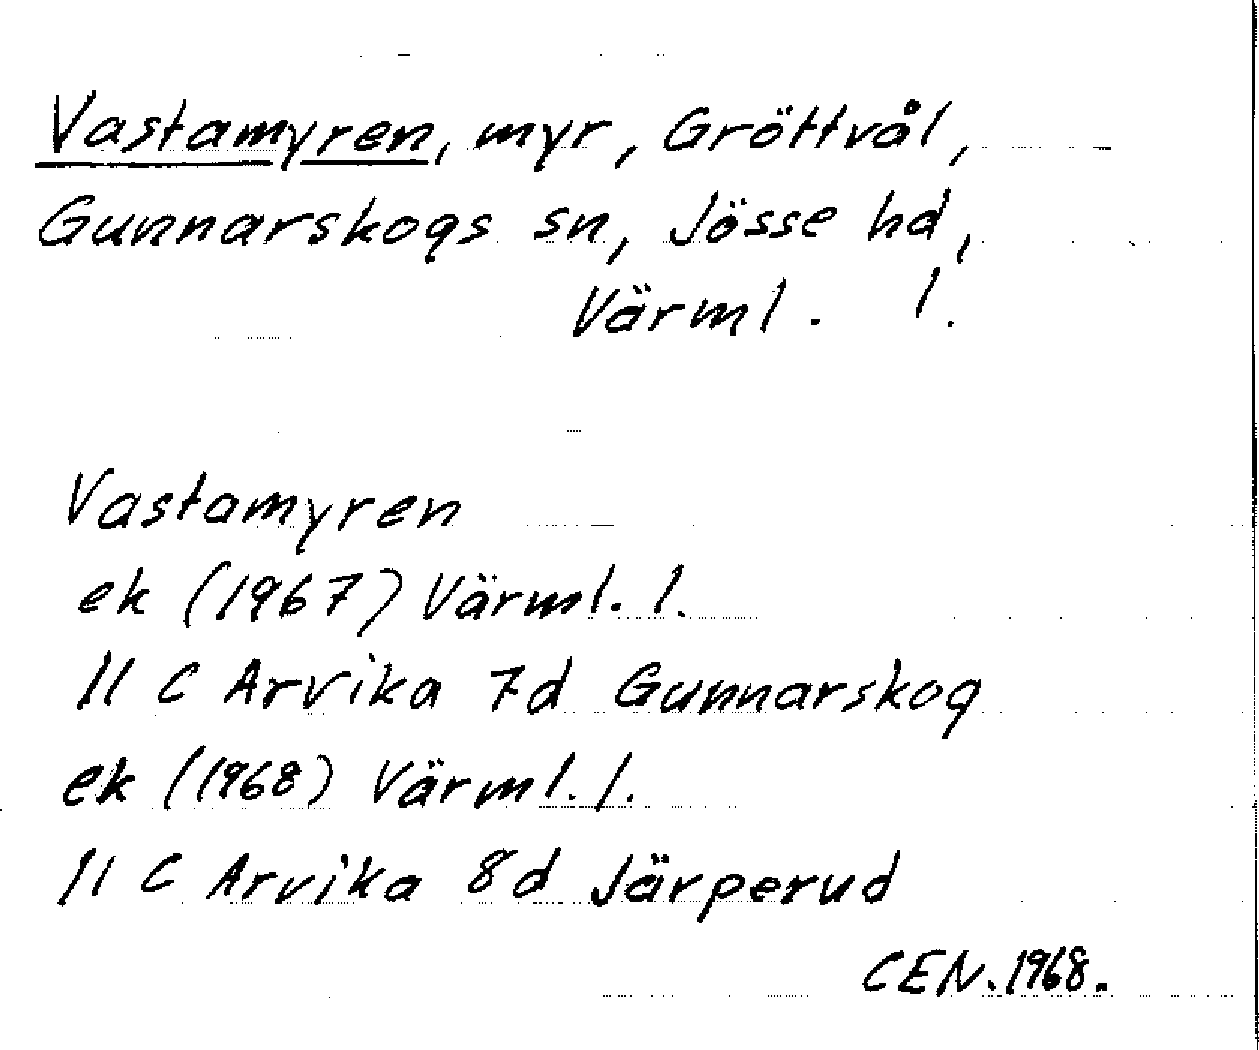 Vastamyren, myr, Gröttvål,
Gunnarskogs sn, Jösse hd,
Värml. l.
Vastamyren
ek (1967) Värml. l.
11 C Arvika 7d Gunnarskog
ek (1968) Värml. l.
11 C Arvika 8d Järperud
CEN. 1968.